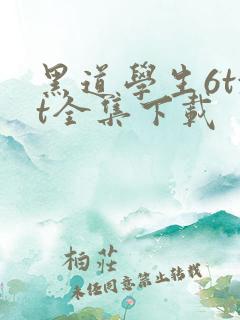 黑道學生6tx
t全集下載
柏莊
未經同意禁止轉載